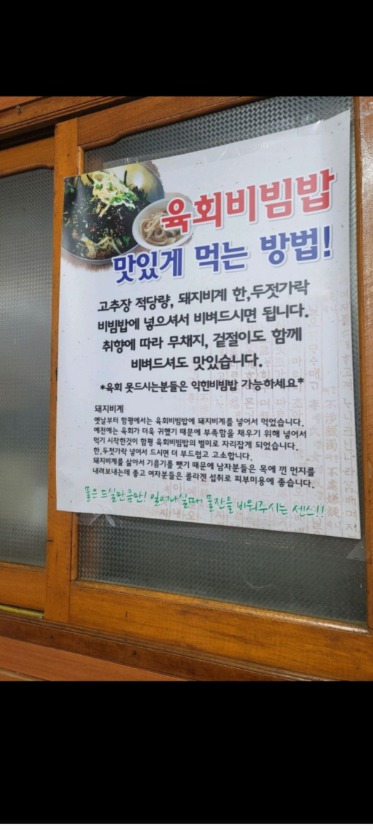 육회비빔밥
맛있게 먹는 방법!
고추장 적당량, 돼지비계 한,두젓가락
비빔밥에 넣으셔서 비벼드시면 됩니다.
취향에 따라 무채지, 겉절이도 함께
비벼드셔도 맛있습니다.
*육회 못드시는분들은 익힌비빔밥 가능하세요*
돼지비계
옛날부터 함평에서는 육회비빔밥에 돼지비계를 넣어서 먹었습니다.
예전에는 육회가 더욱 귀했기 때문에 부족함을 채우기 위해 넣어서
먹기 시작한것이 함평 육회비빔밥의 별미로 자리잡게 되었습니다.
한,두젓가락 넣어서 드시면 더 부드럽고 고소합니다.
돼지비계를 삶아서 기름기를 뺏기 때문에 남자분들은 목에 낀 먼지를
내려보내는데 좋고 여자분들은 콜라겐 섭취로 피부미용에 좋습니다.
물은 드실만큼만! 일어나실때 물잔을 비워주시는 센스!!